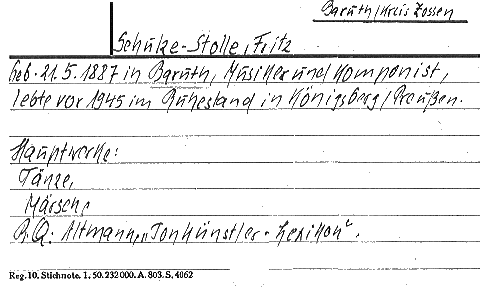 Baruth/Kreis Zossen
Schulze-Stolle, Fritz
Geb. 21.5.1887 in Baruth, Musiker und Komponist,
lebte vor 1945 im Ruhestand in Königsberg/Preußen.
Hauptwerke:
Tänze,
Märsche
Altmann, "Tonkünstler-Lexikon".
Reg. 10. Stichnote. 1. 50. 232 000. A. 803. S. 4062